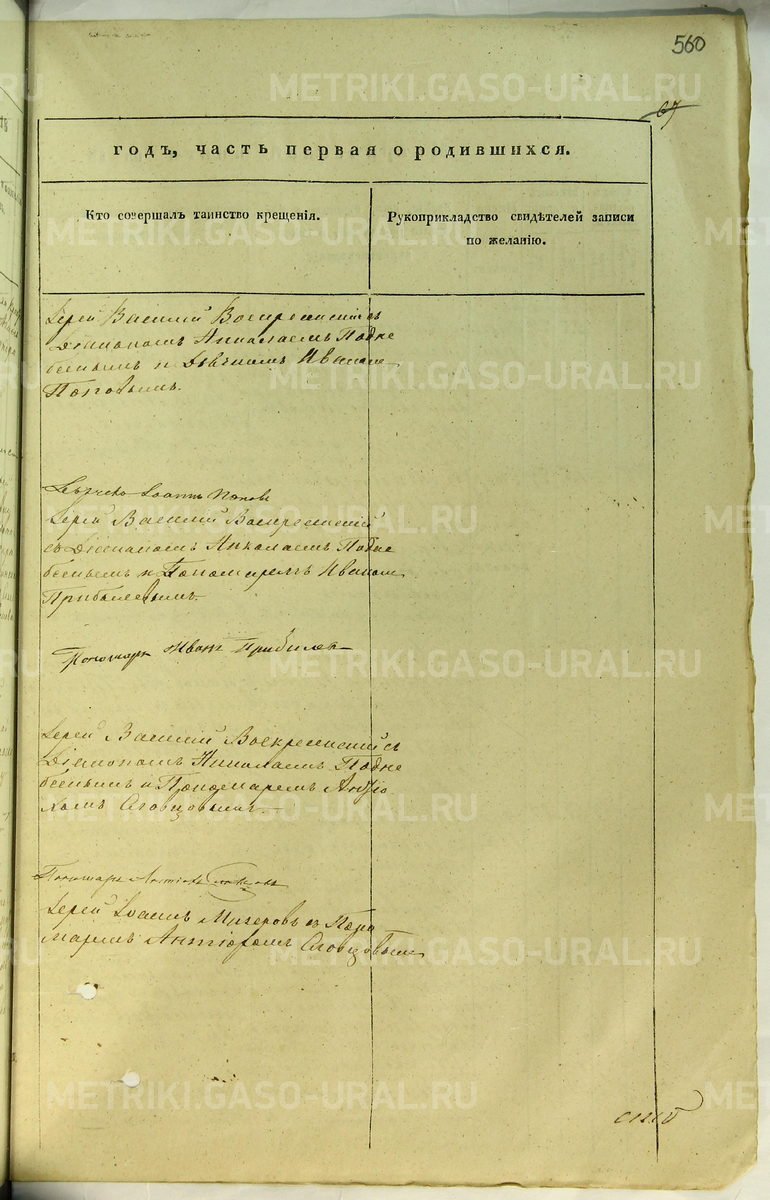 560
67
годъ, часть первая о родившихся.
Кто совершалъ таинство крещенія.
Рукоприкладство свидѣтелей записи
по желанію.
Іерей Василій Воскресенскій съ
Діакономъ Николаемъ Подне
беснымъ и Дьячкомъ Иваномъ
Поповымъ.
Іоаннъ Поповъ
Іерей Василій Воскресенскій
съ Діакономъ Николаемъ Подне
беснымъ и Пономаремъ Иваномъ
Прибылевымъ.
Пономарь Иванъ Прибылев
Іерей Василій Воскресенскій съ
Діакономъ Николаемъ Подне
беснымъ и Пономаремъ Антіо
хомъ Словцовымъ
Пономарь
Іерей Іоаннъ Мизеровъ съ Поно
маремъ Антіохомъ Словцовым
METRIKI.GASO-URAL.RU